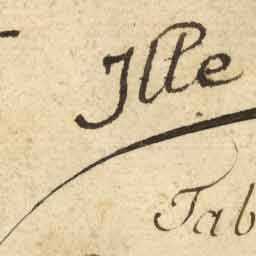 Ille
Tab